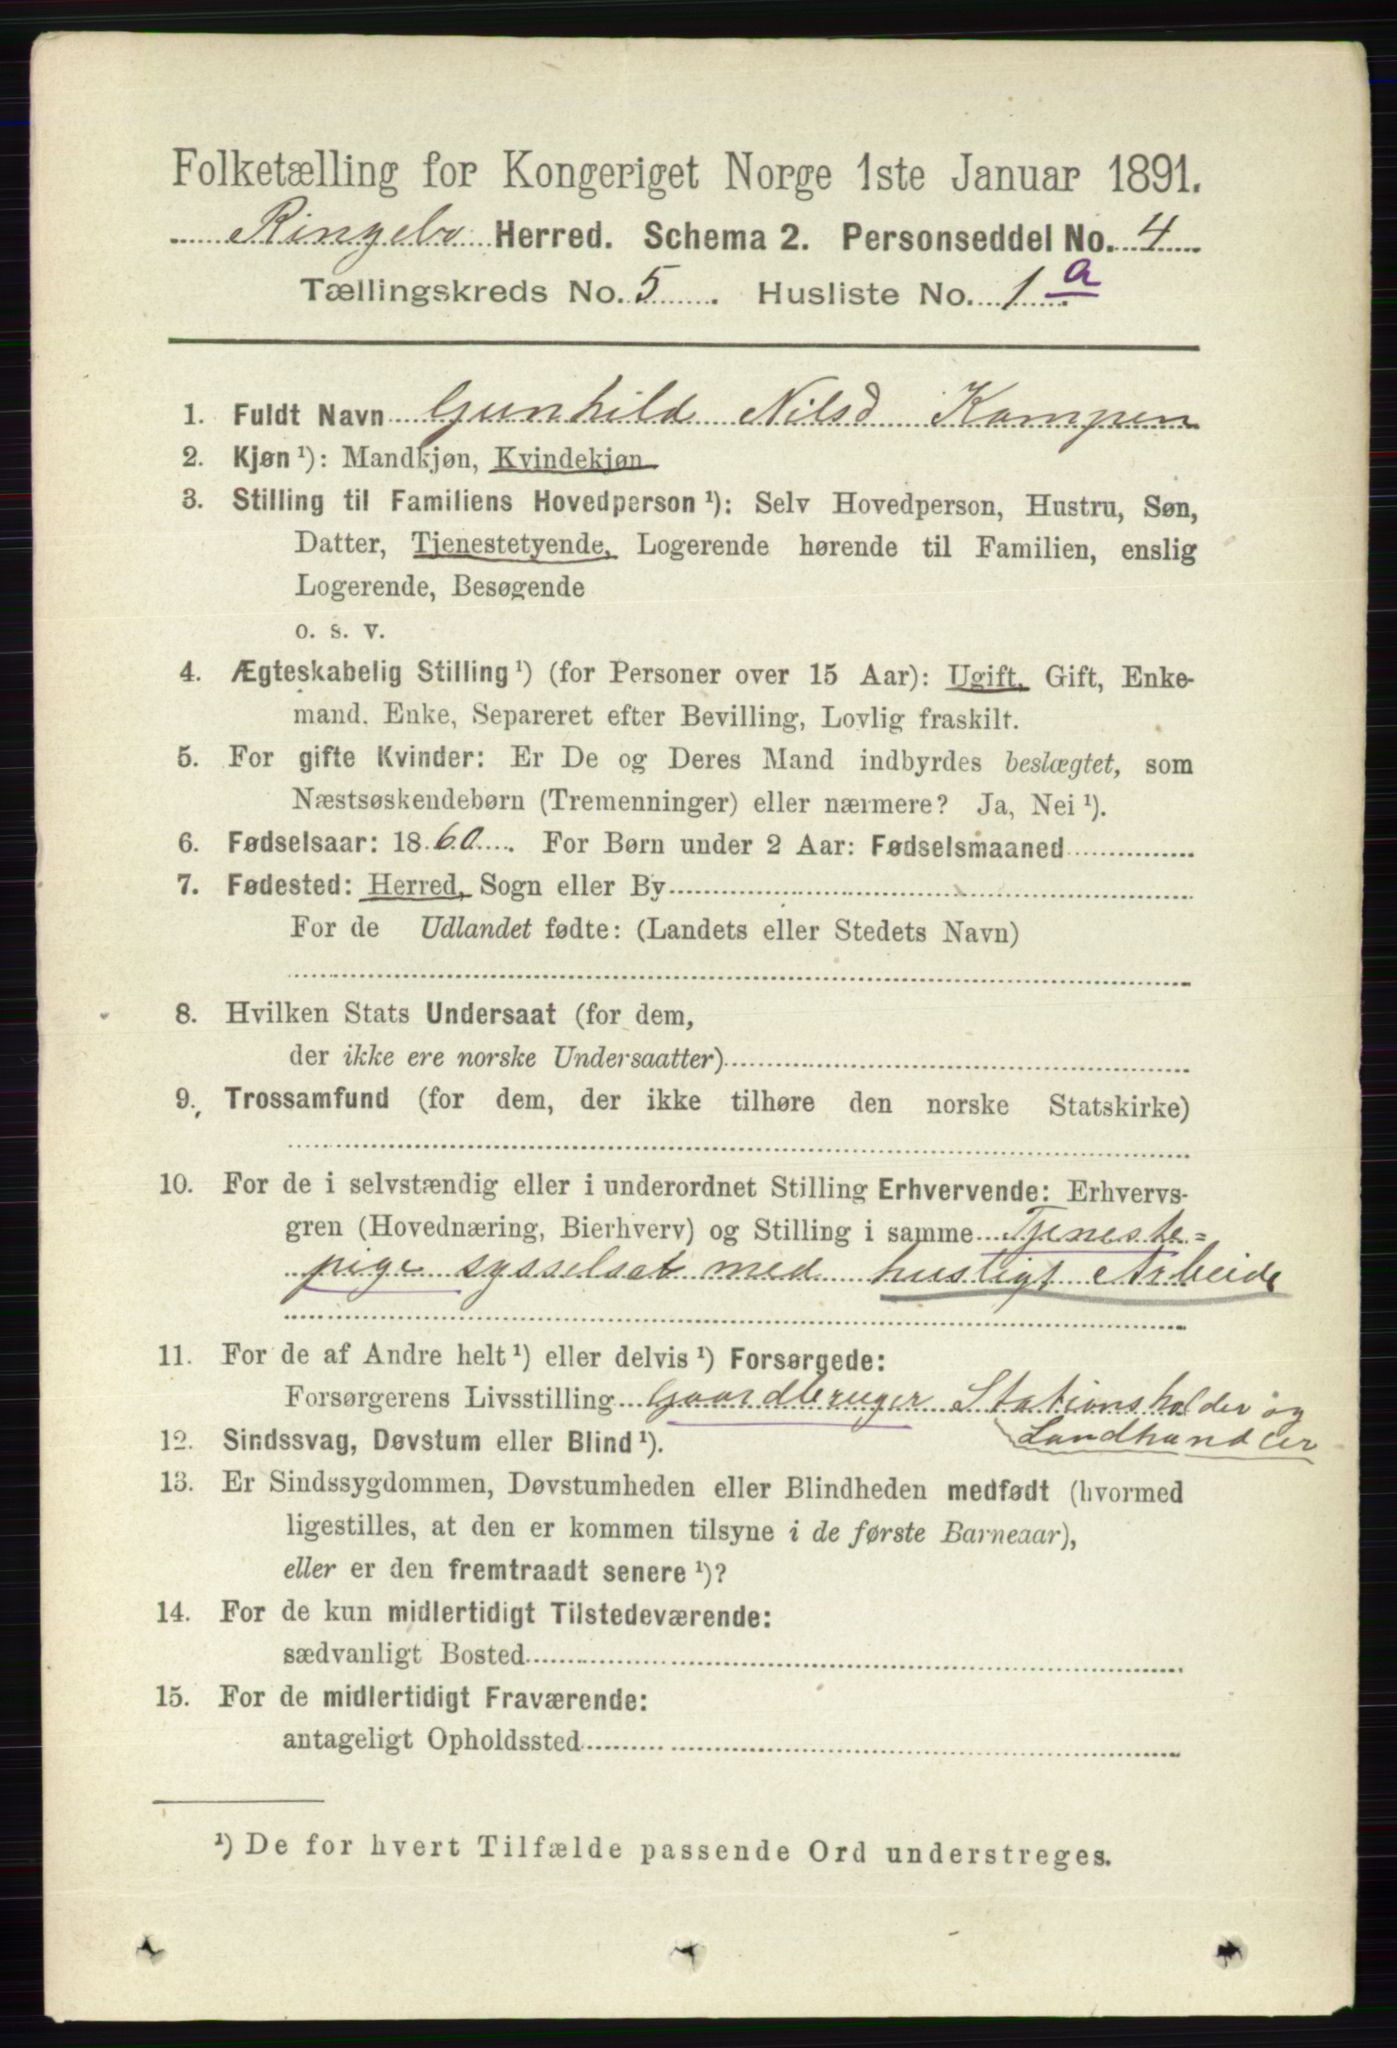 Folketælling for Kongeriget Norge 1ste Januar 1891.
Ringebo Herred. Schema 2. Personseddel No. 4
Tællingskreds No. 5. Husliste No. 1 a
1. Fuldt Navn Gunhild Nilsd Kampen
2. Kjøn ¹): Mandkjøn, Kvindekjøn
3. Stilling til Familiens Hovedperson ¹): Selv Hovedperson, Hustru, Søn,
Datter, Tjenestetyende, Logerende hørende til Familien, enslig
Logerende, Besøgende
o. s. v.
4. Ægteskabelig Stilling ¹) (for Personer over 15 Aar): Ugift, Gift, Enke-
mand. Enke, Separeret efter Bevilling, Lovlig fraskilt.
5. For gifte Kvinder: Er De og Deres Mand indbyrdes beslægtet, som
Næstsøskendebørn (Tremenninger) eller nærmere? Ja, Nei ¹).
6. Fødselsaar: 1860. For Børn under 2 Aar: Fødselsmaaned
7. Fødested: Herred, Sogn eller By
For de Udlandet fødte: (Landets eller Stedets Navn)
8. Hvilken Stats Undersaat (for dem,
der ikke ere norske Undersaatter)
9. Trossamfund (for dem, der ikke tilhøre den norske Statskirke)
10. For de i selvstændig eller i underordnet Stilling Erhvervende: Erhvervs-
gren (Hovednæring, Bierhverv) og Stilling i samme Tjeneste=
pige sysselsat med husligt Arbeide
11. For de af Andre helt ¹) eller delvis ¹) Forsørgede:
Forsørgerens Livsstilling Gaardbruger Stationsholder og
Landhandler
12. Sindssvag, Døvstum eller Blind ¹).
13. Er Sindssygdommen, Døvstumheden eller Blindheden medfødt (hvormed
ligestilles, at den er kommen tilsyne i de første Barneaar),
eller er den fremtraadt senere ¹)?
14. For de kun midlertidigt Tilstedeværende:
sædvanligt Bosted
15. For de midlertidigt Fraværende:
antageligt Opholdssted
¹) De for hvert Tilfælde passende Ord understreges.